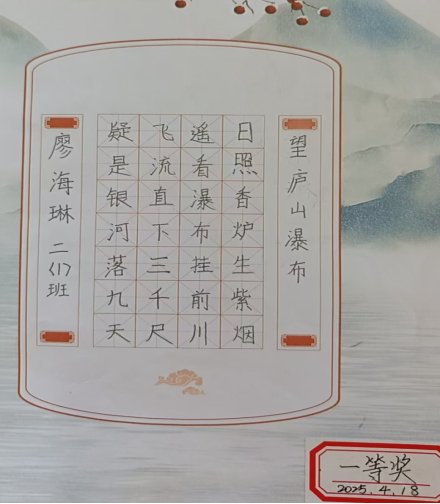 望庐山瀑布
日照香炉生紫烟
遥看瀑布挂前川
飞流直下三千尺
疑是银河落九天
廖海琳 二(1)班
一等奖
2025.4.18